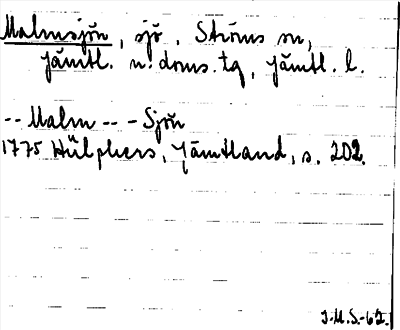 Malmsjön, sjö, Ströms sn,
Jämtl. n. doms. tg, Jämtl. l.
-- Malm -- - Sjön
1775 Hülphers, Jämtland, s. 202.
J.M.S.-62.